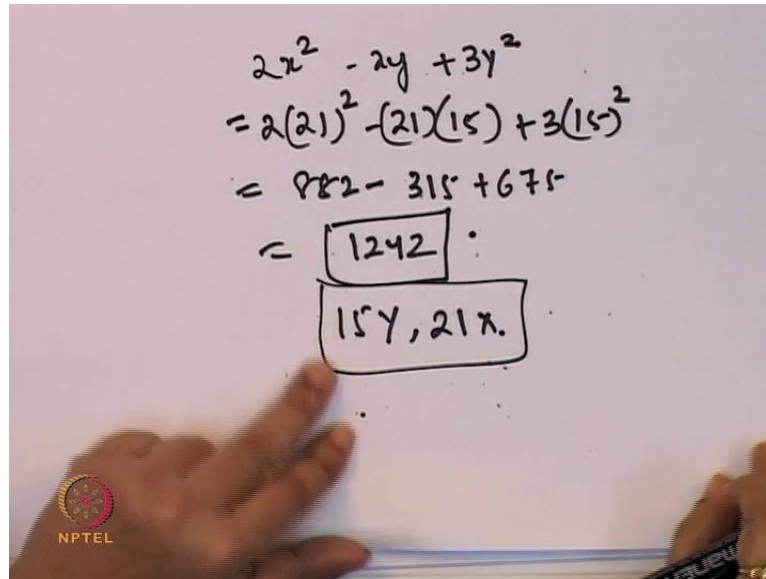 2x² - xy + 3y²
= 2(21)² - (21)(15) + 3(15)²
= 882 - 315 + 675
= 1242
15Y, 21X.
NPTEL